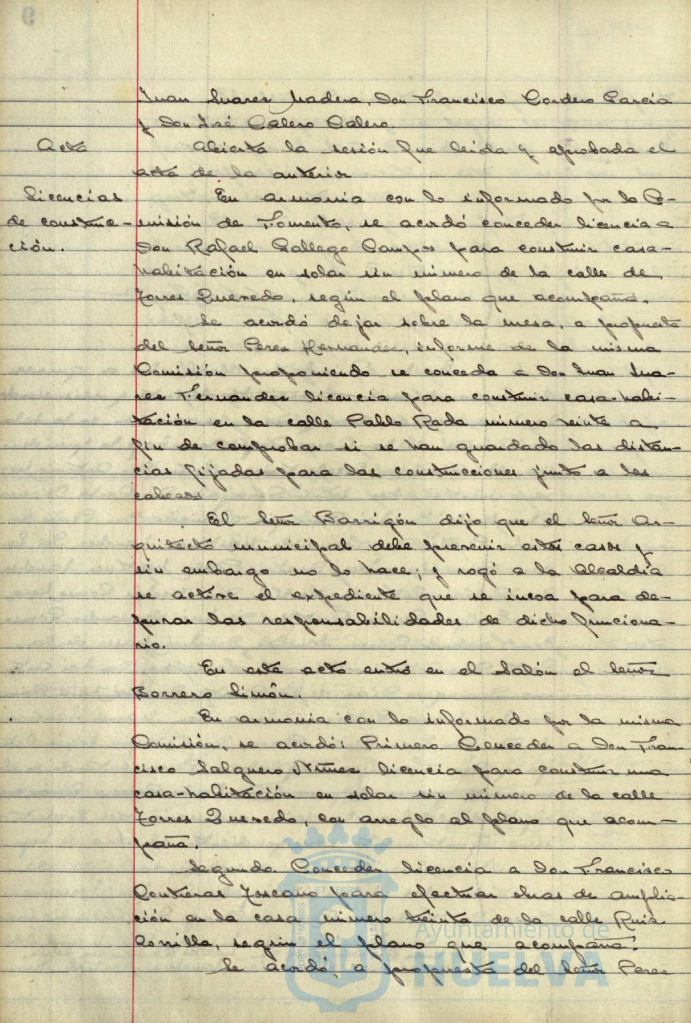 Juan Suarez Madera, Don Francisco Cordero Garcia
y Don José Calero Calero.
Acta
Abierta la sesión fue leida y aprobada el
acta de la anterior.
Licencias
de construc-
ción.
En armonia con lo informado por la Co-
misión de Fomento, se acordó conceder licencia a
Don Rafael Gallego Campos para construir casa-
habitación en solar sin número de la calle de
Torres Quevedo, según el plano que acompaña.
Se acordó dejar sobre la mesa, a propuesta
del Señor Perez Hernandez, informe de la misma
Comisión proponiendo se conceda a Don Juan Sua-
rez Fernandez licencia para construir casa-habi-
tación en la calle Pablo Rada número veinte a
fin de comprobar si se han guardado las distan-
cias fijadas para las construcciones junto a los
cabezos
El Señor Barrigón dijo que el Señor Ar-
quitecto municipal debe prevenir estos casos y
sin embargo no lo hace; y rogó a la Alcaldía
se active el expediente que se incoa para de-
purar las responsabilidades de dicho funciona-
rio.
En este acto entró en el Salón el Señor
Borrero Simón.
En armonia con lo informado por la misma
Comisión, se acordó: Primero. Conceder a Don Fran-
cisco Salguero Núñez licencia para construir una
casa-habitación en solar sin número de la calle
Torres Quevedo, con arreglo al plano que acom-
paña.
Segundo. Conceder licencia a Don Francisco
Contreras Toscano para efectuar obras de amplia-
ción en la casa número treinta de la calle Ruiz
Zorrilla, según el plano que acompaña.
Se acordó, a propuesta del Señor Perez
Ayuntamiento de
HUELVA